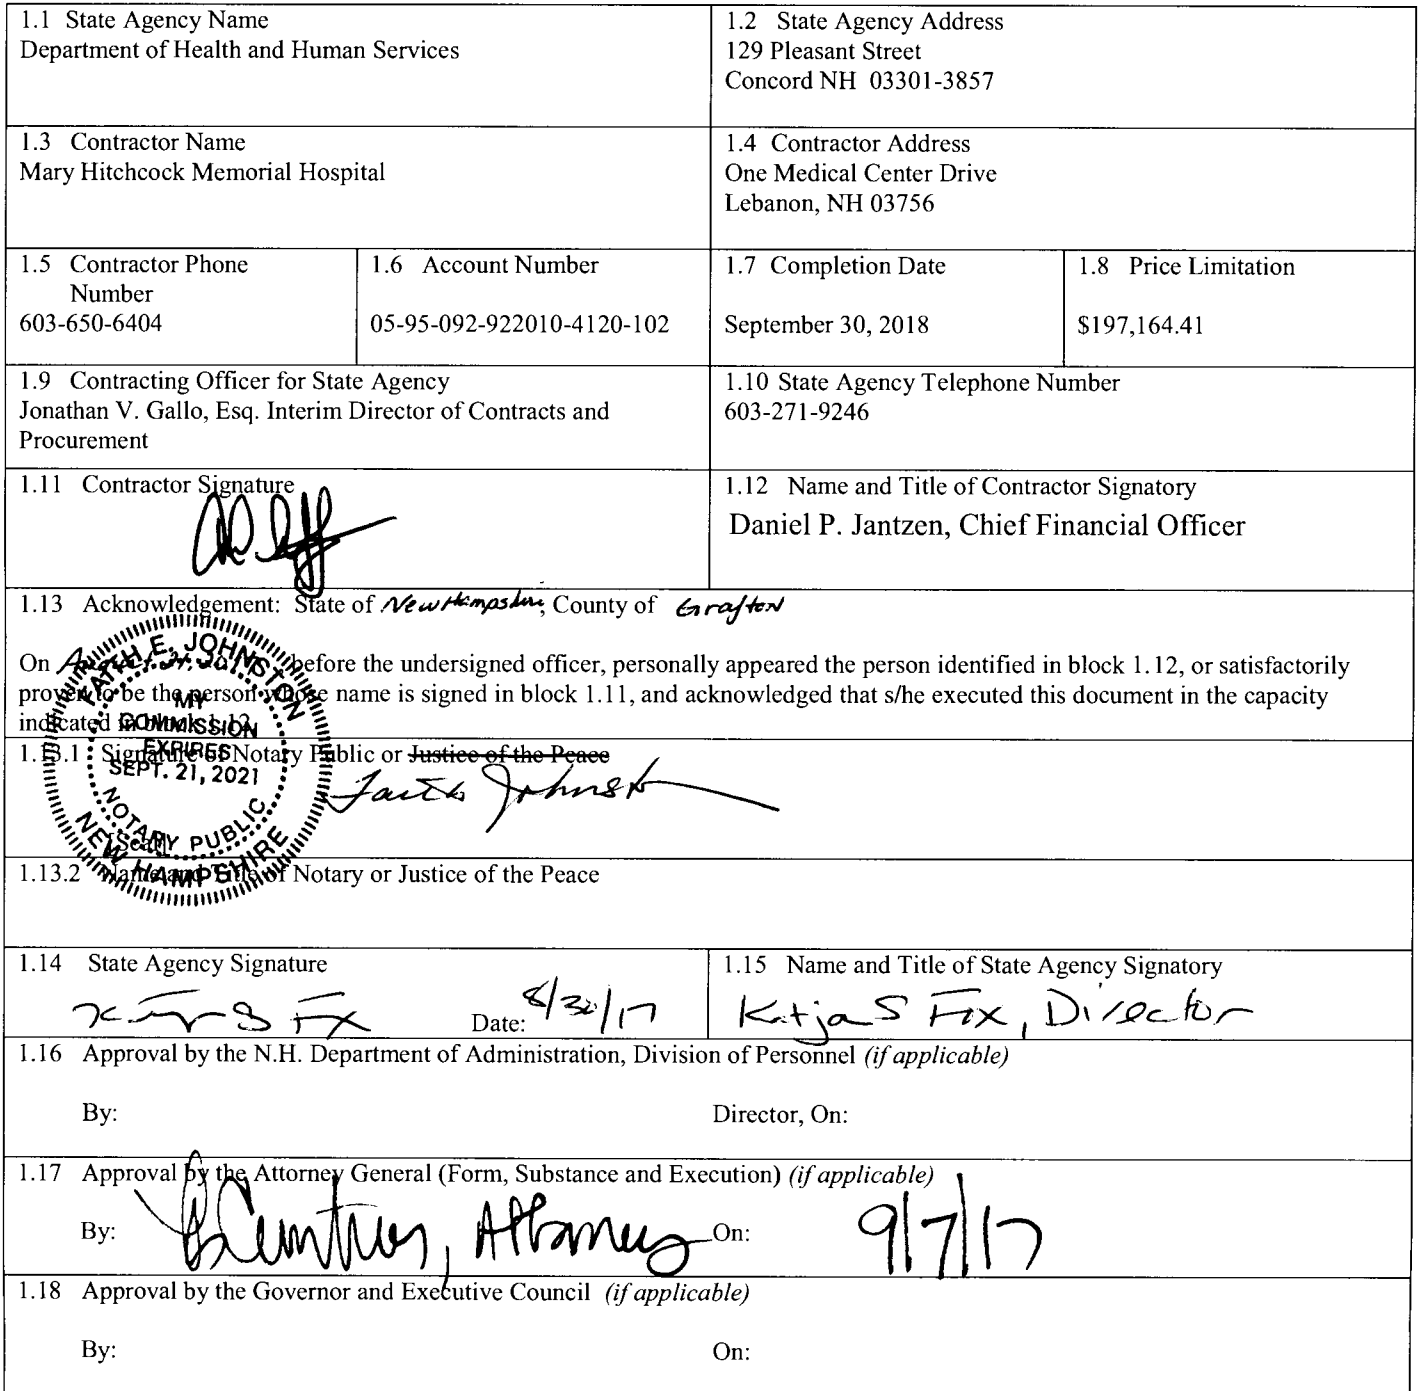 1.1 State Agency Name
Department of Health and Human Services
1.2 State Agency Address
129 Pleasant Street
Concord NH 03301-3857
1.3 Contractor Name
Mary Hitchcock Memorial Hospital
1.4 Contractor Address
One Medical Center Drive
Lebanon, NH 03756
1.5 Contractor Phone
Number
603-650-6404
1.6 Account Number
05-95-092-922010-4120-102
1.7 Completion Date
September 30, 2018
1.8 Price Limitation
$197,164.41
1.9 Contracting Officer for State Agency
Jonathan V. Gallo, Esq. Interim Director of Contracts and
Procurement
1.10 State Agency Telephone Number
603-271-9246
1.11 Contractor Signature
1.12 Name and Title of Contractor Signatory
Daniel P. Jantzen, Chief Financial Officer
1.13 Acknowledgement: State of New Hampshire, County of Grafton
On August before the undersigned officer, personally appeared the person identified in block 1.12, or satisfactorily
proven to be the person whose name is signed in block 1.11, and acknowledged that s/he executed this document in the capacity
indicated in block 1.12.
FAITH E. JOHNSTON
MY
COMMISSION
EXPIRES
SEPT. 21, 2021
NOTARY PUBLIC
NEW HAMPSHIRE
1.13.1 Signature of Notary Public or Justice of the Peace
Faith Johnston
[Seal]
1.13.2 Name and Title of Notary or Justice of the Peace
1.14 State Agency Signature
Date: 8/30/17
1.15 Name and Title of State Agency Signatory
Katja S Fox, Director
1.16 Approval by the N.H. Department of Administration, Division of Personnel (if applicable)
By: Director, On:
1.17 Approval by the Attorney General (Form, Substance and Execution) (if applicable)
By: Attorney On: 9/7/17
1.18 Approval by the Governor and Executive Council (if applicable)
By: On: